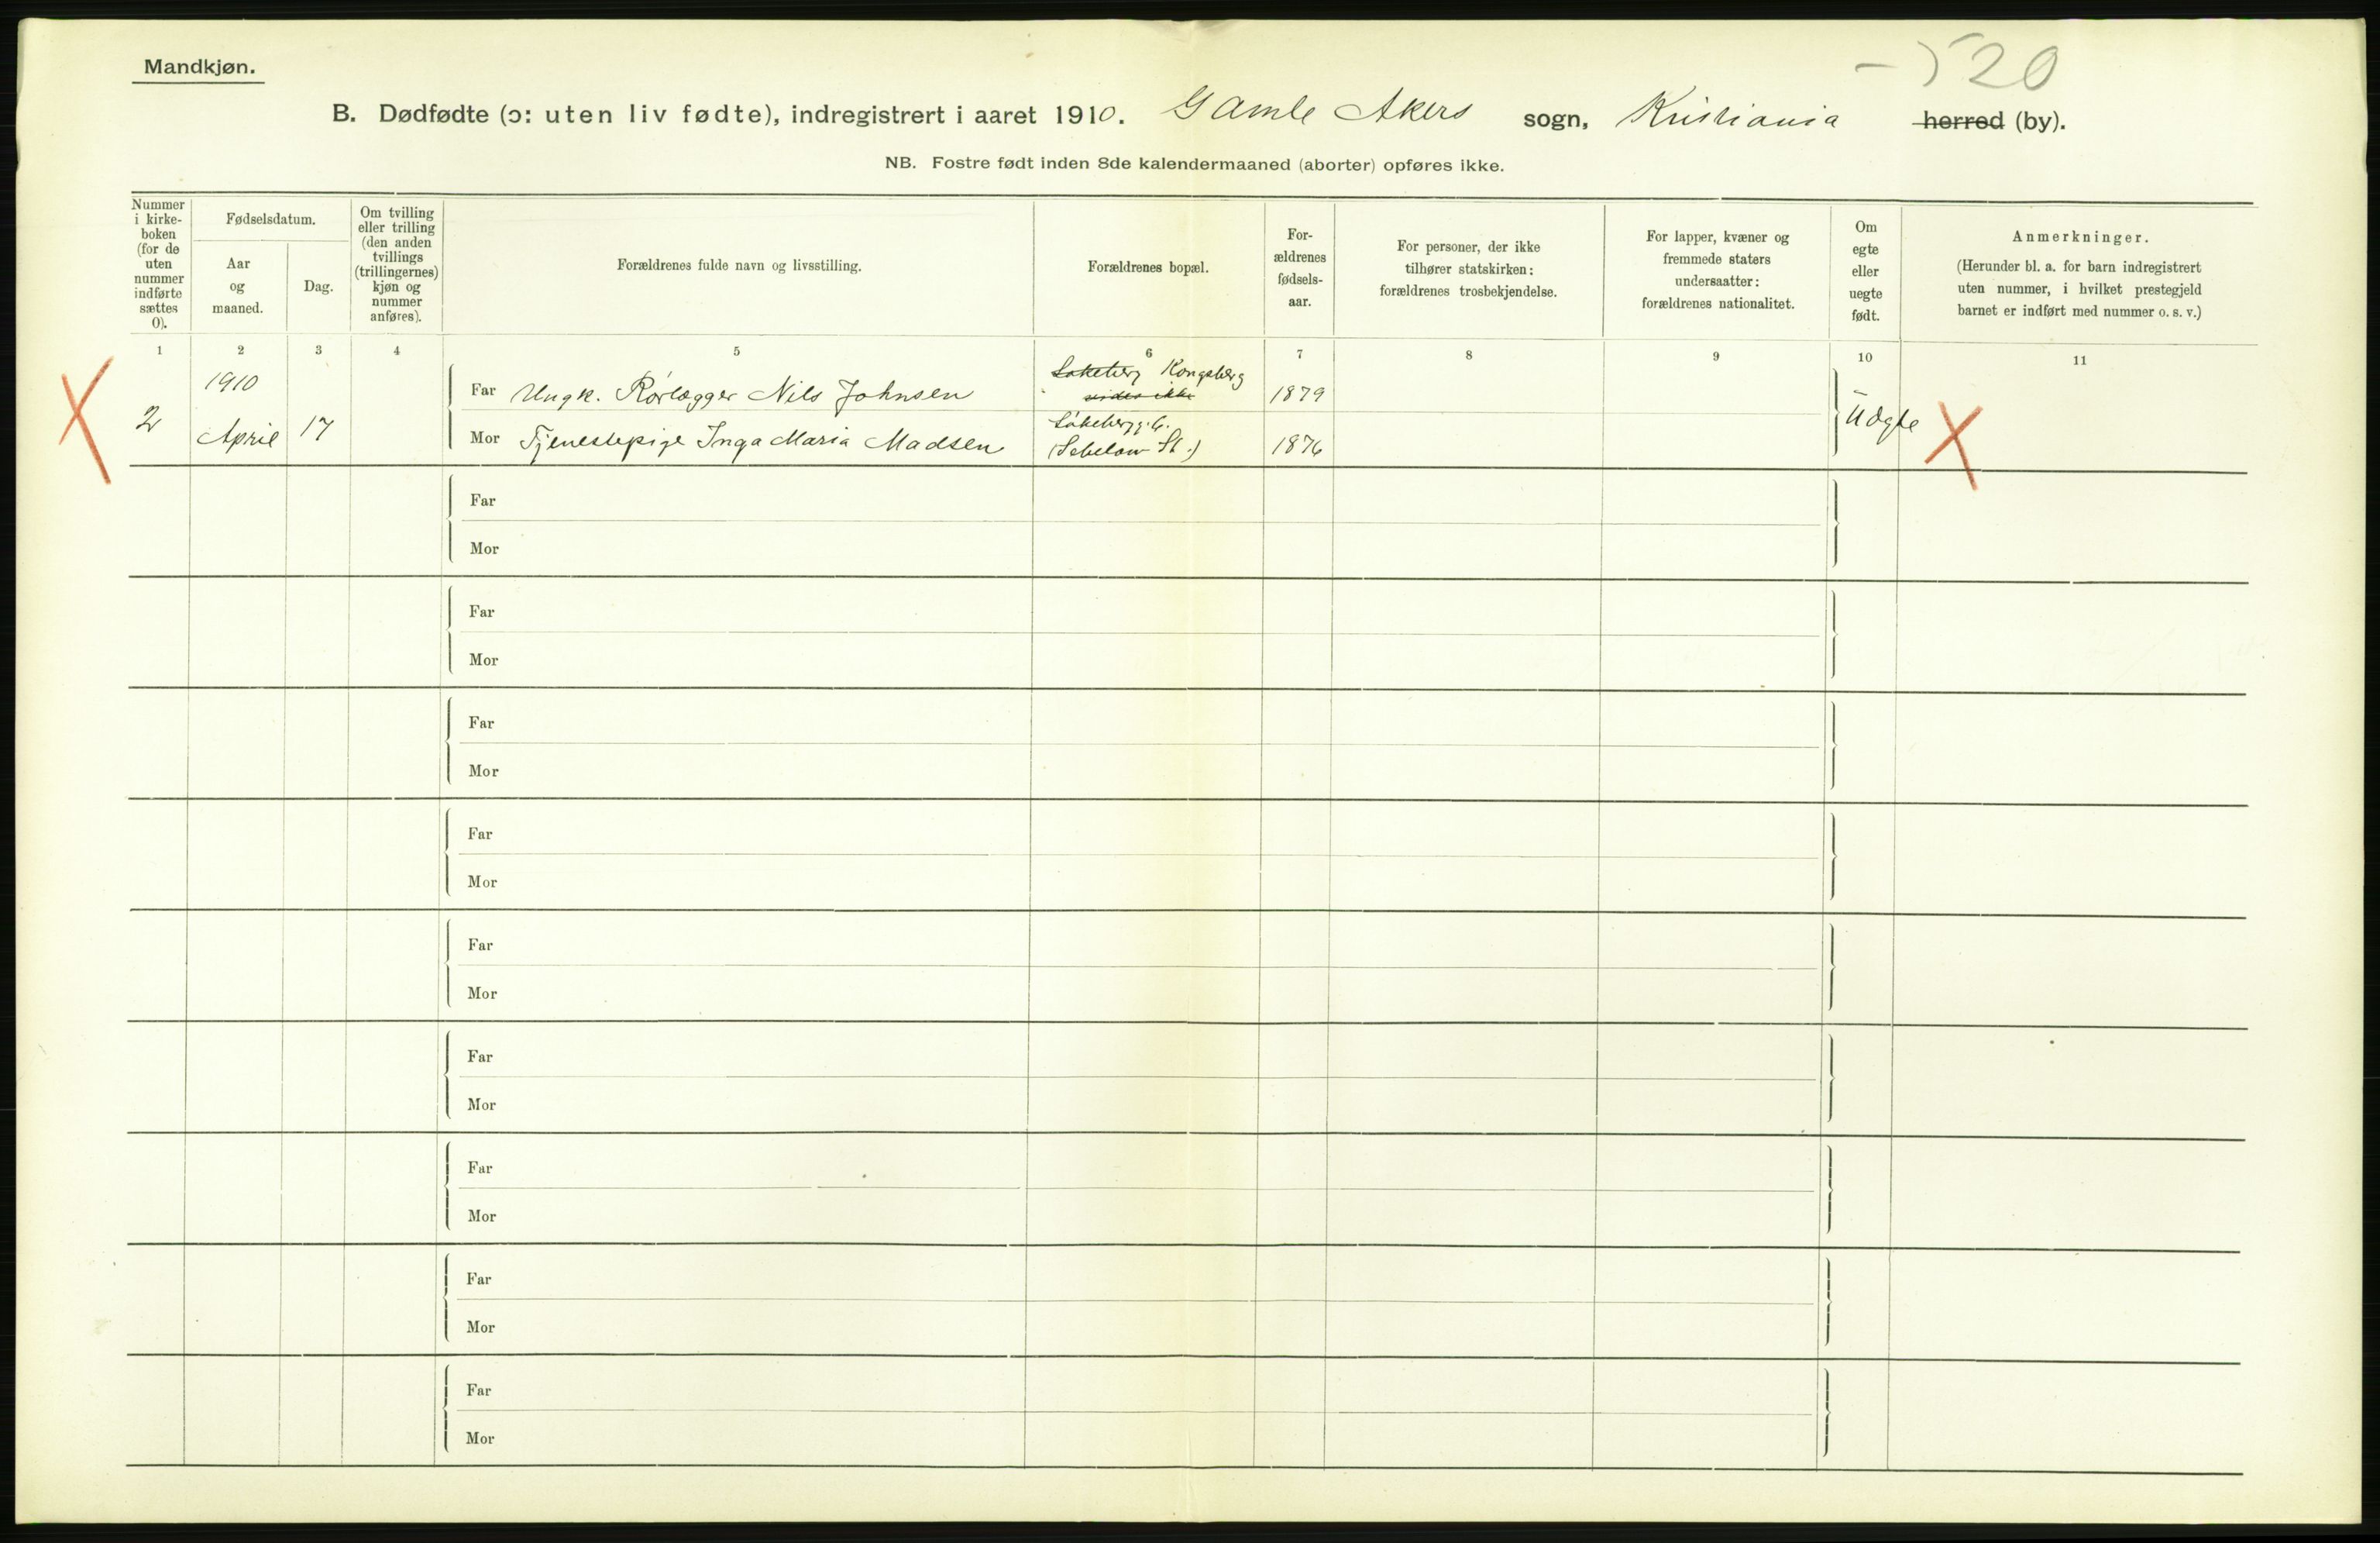 520
Mandkjøn.
B. Dødfødte (ɔ: uten liv fødte), indregistrert i aaret 1910. Gamle Akers sogn, Kristiania herred (by).
NB. Fostre født inden 8de kalendermaaned (aborter) opføres ikke.
Nummer
i kirke-
boken
(for de
uten
nummer
indførte
sættes
0).
Fødselsdatum.
Aar
og
maaned.
Dag.
Om tvilling
eller trilling
(den anden
tvillings
(trillingernes)
kjøn og
nummer
anføres).
Forældrenes fulde navn og livsstilling.
Forældrenes bopæl.
For-
ældrenes
fødsels-
aar.
For personer, der ikke
tilhører statskirken:
forældrenes trosbekjendelse.
For lapper, kvæner og
fremmede staters
undersaatter:
forældrenes nationalitet.
Om
egte
eller
uegte
født.
Anmerkninger.
(Herunder bl. a. for barn indregistrert
uten nummer, i hvilket prestegjeld
barnet er indført med nummer o. s. v.)
1 2 3 4 5 6 7 8 9 10 11
1910
2 April 17
Far Ungk. Rørlægger Nils Johnsen Kongsberg 1879
Mor Tjenestepige Inga Maria Madsen 1876
Uægte
Far
Mor
Far
Mor
Far
Mor
Far
Mor
Far
Mor
Far
Mor
Far
Mor
Far
Mor
Far
Mor